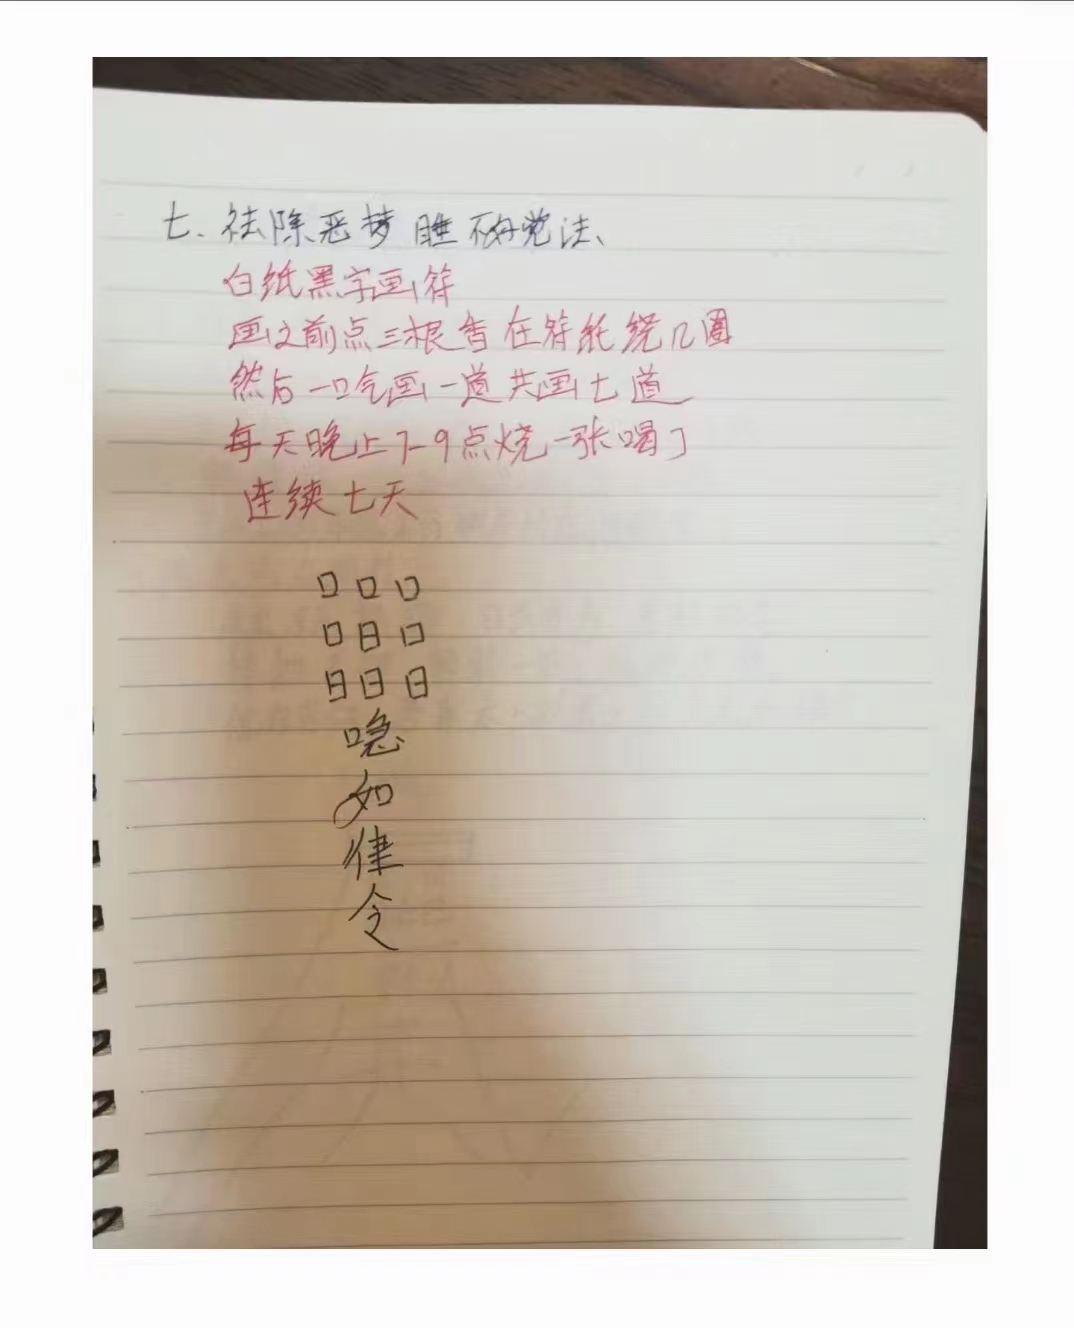 七、祛除恶梦睡不好觉法、
白纸黑字画符
画之前点三根香在符纸绕几圈
然后一口气画一道共画七道
每天晚上7-9点烧一张喝了
连续七天
口口口
口日口
日日日
噫
如
律
令